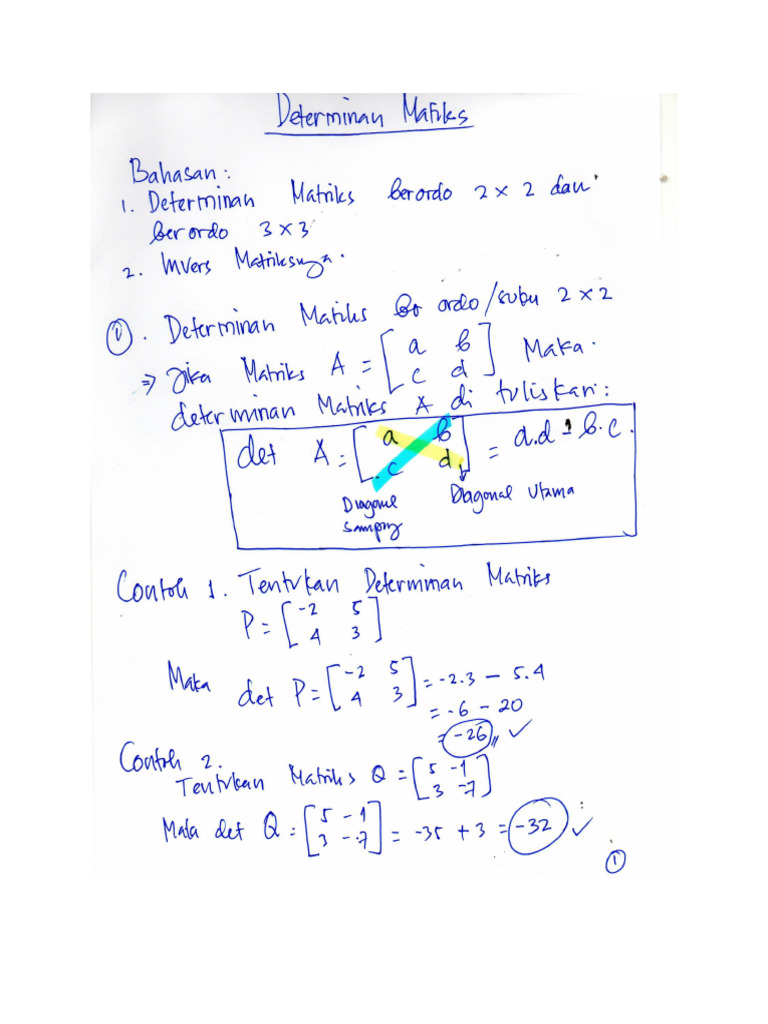 Determinan Matriks
Bahasan:
1. Determinan Matriks berordo 2 x 2 dan
berordo 3 x 3
2. Invers Matriksnya.
①. Determinan Matriks ber ordo/ 2 x 2
=> Jika Matriks A = [ a b ; c d ] Maka.
determinan Matriks A di tuliskan:
det A = [ a b ; c d ] = a.d - b.c.
Diagonal Utama
Diagonal
Samping
Contoh 1. Tentukan Determinan Matriks
P = [ -2 5 ; 4 3 ]
Maka det P = [ -2 5 ; 4 3 ] = -2.3 - 5.4
= -6 - 20
= -26 ✓
Contoh 2.
Tentukan Matriks Q = [ 5 -1 ; 3 -7 ]
Maka det Q = [ 5 -1 ; 3 -7 ] = -35 + 3 = -32 ✓
①